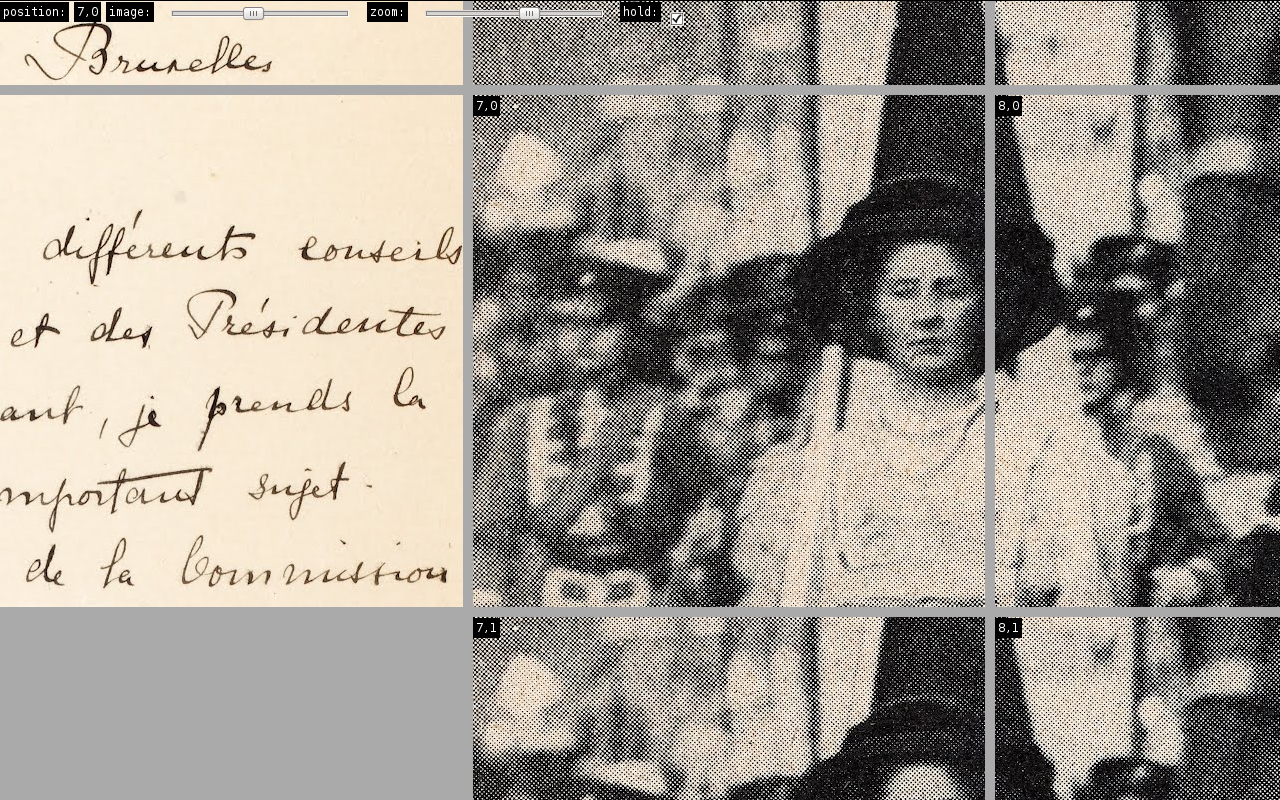 position: 7,0 image: zoom: hold:
Bruxelles
7,0
8,0
différents conseils
et des Présidentes
ant, je prends la
mportant sujet.
de la Commission
7,1
8,1